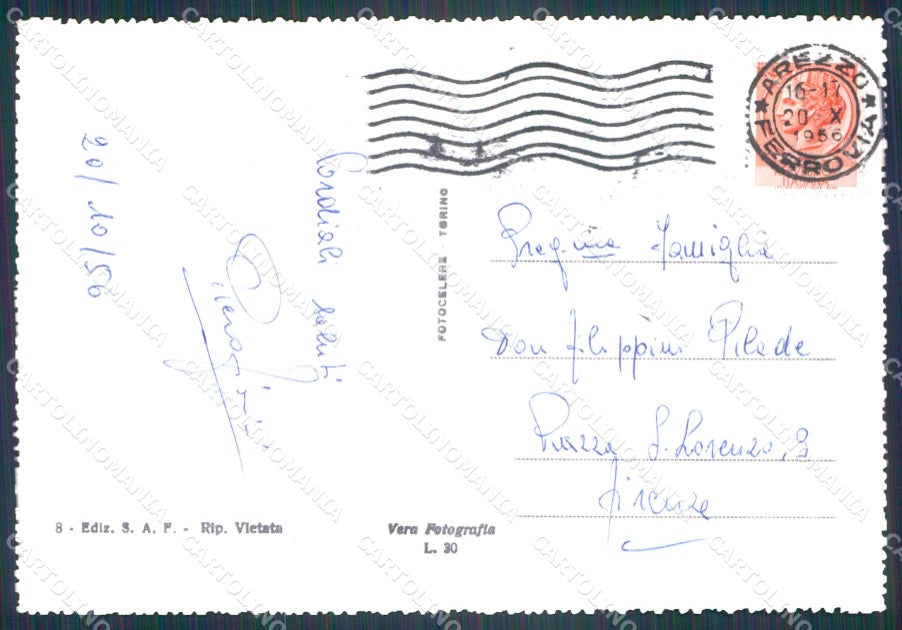 AREZZO
16-17
20 X
1956
FERROVIA
ITALIANA
20/10/56
Cordiali saluti
FOTOCELERE - TORINO
Preg.ma Famiglia
Don Filippini Pilade
Piazza S. Lorenzo, 9
Firenze
8 - Ediz. S. A. F. - Rip. Vietata
Vera Fotografia
L. 30
CARTOLINOMANIA